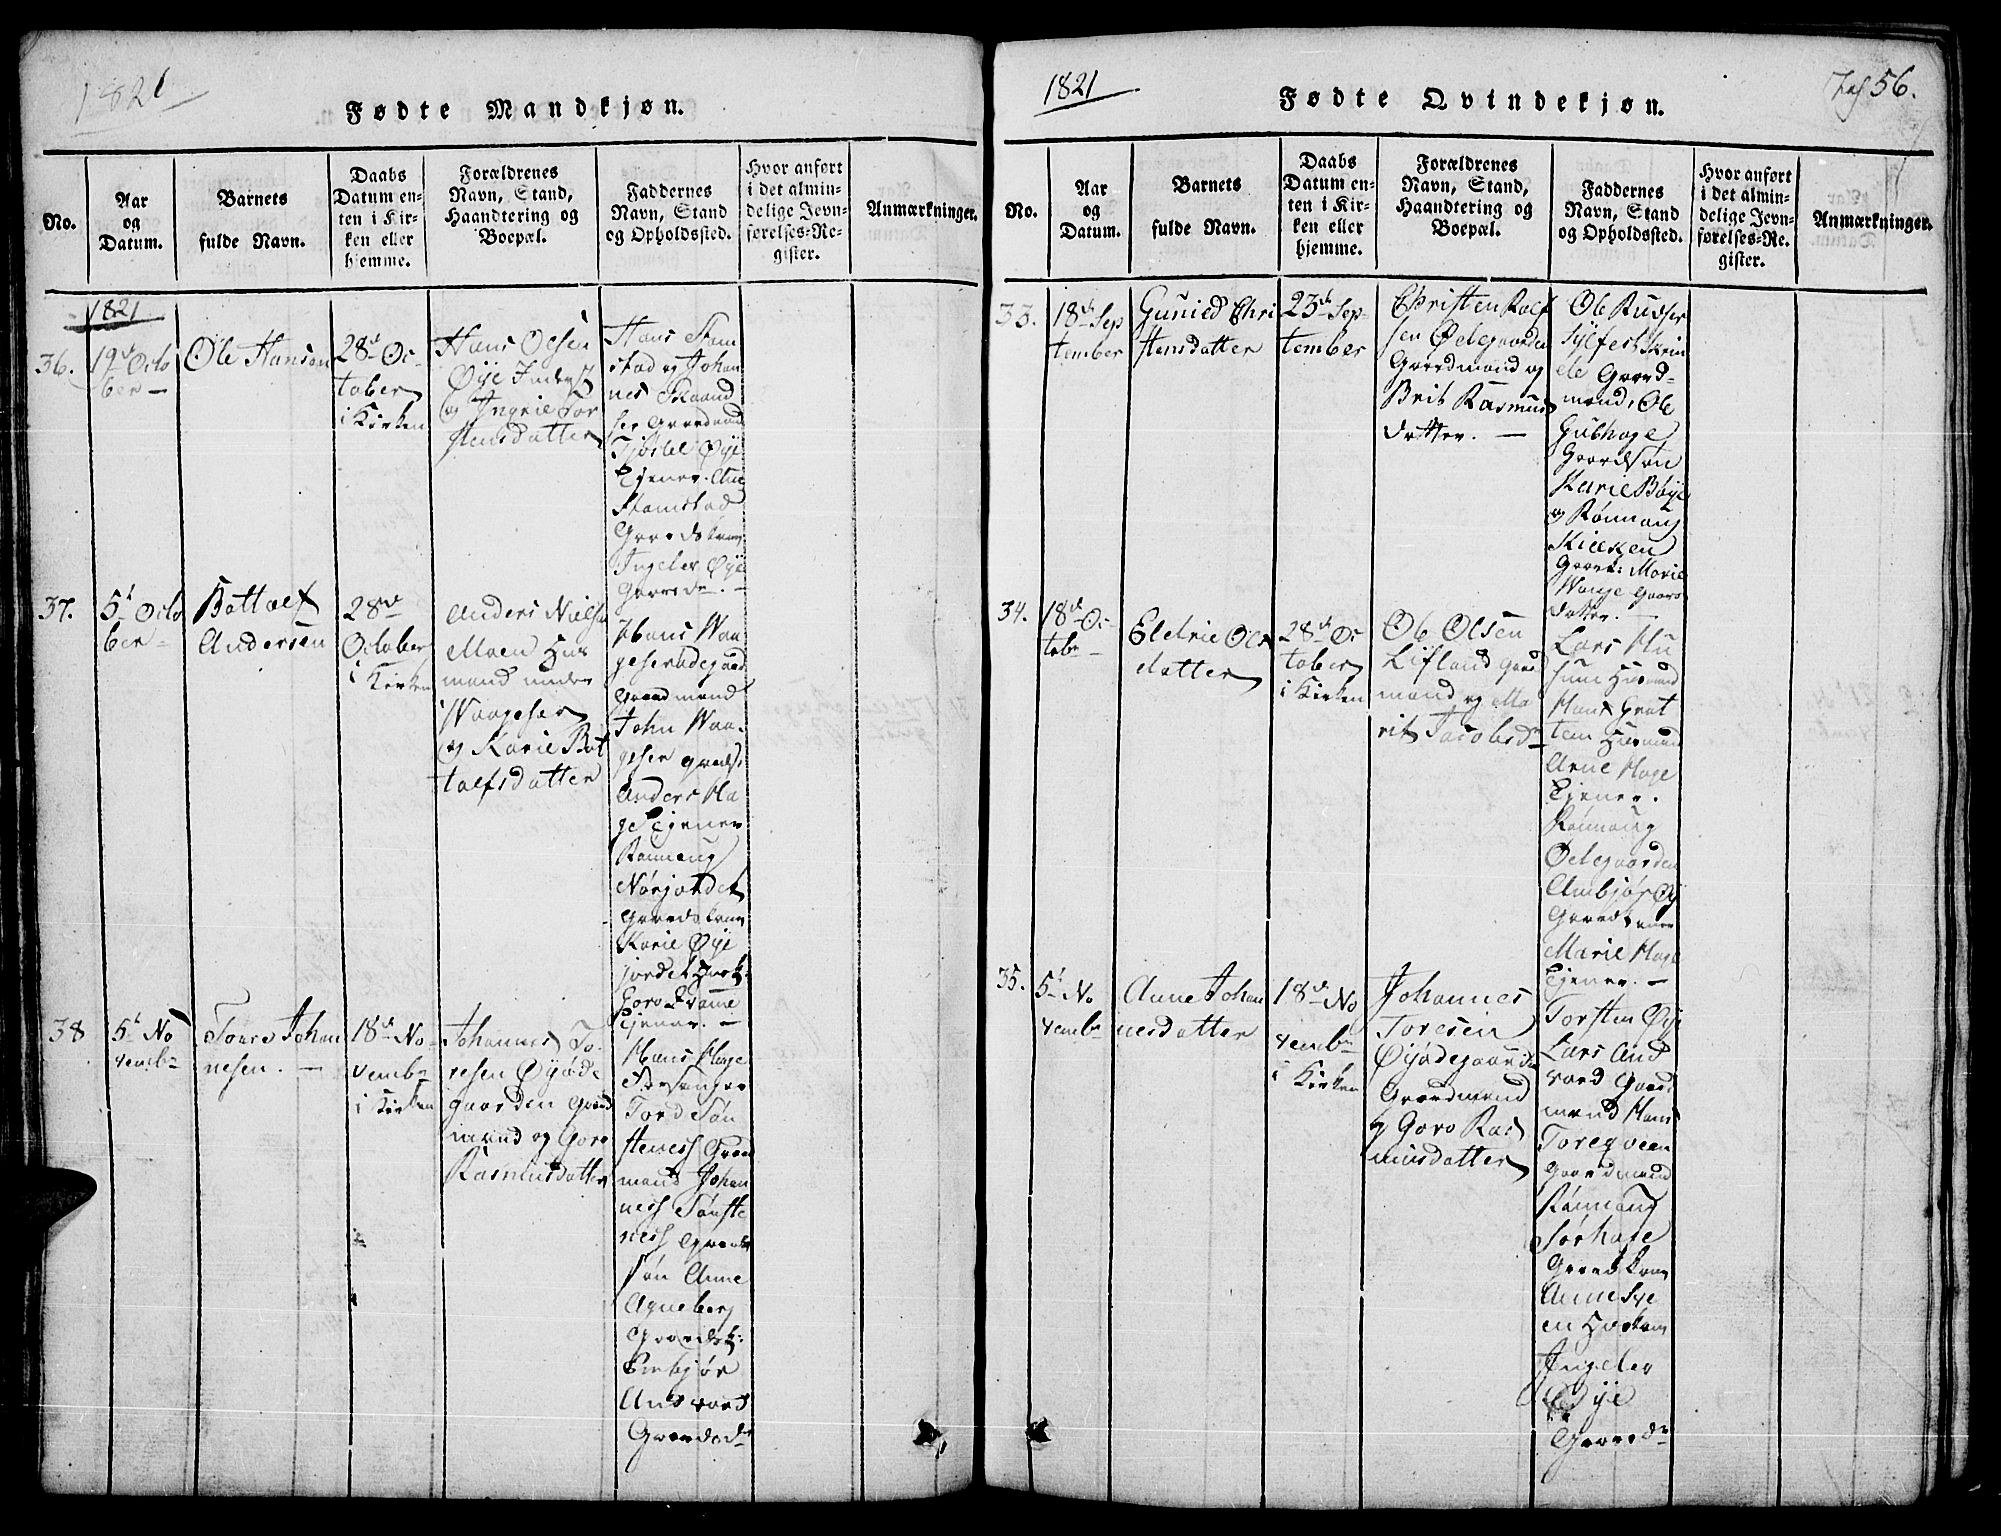 1821
Fødte Mandkjøn.
No.
Aar
og
Datum.
Barnets
fulde Navn.
Daabs
Datum en-
ten i Kir-
ken eller
hjemme.
Forældrenes
Navn, Stand,
Haandtering og
Boepæl.
Faddernes
Navn, Stand
og Opholdssted.
Hvor anført
i det almin-
delige Jevn-
førelses-Re-
gister.
Anmærkninger.
1821
36.
19de Octo
ber —
Ole Hansen
28de Oc
tober
i Kirken
Hans Olsen
Øye Inderst
og Ingrie Tor
stensdatter
Hans Stam
stad og Johan
nes
Gaardmand
Øye
Tjener. Ane
Stamstad
Gaardskone
Ingeler Øye
Gaardsdr. —
37.
5t Octo
ber —
Bottolf
Andersen
28de
October
i Kirken
Anders Niels
Moen Hus
mand under
Waageser
og Karie Bot
tolfsdatter
Hans Waa
geserødegaard
Gaardmand
John Waa-
geser
Anders Ha
ge Tjener
Rønnaug
Nørjordet
Gaardskone
Karie Øye
jordet Husk:
Goro Kvame
Tjener. —
38
5t No
vembr
Tore Johan
nesen. —
18de No-
vembr
i Kirken
Johannes To-
resen Øyøde
gaarden Gaard
mand og Goro
Rasmusdatter
Hans Hage
Forsanger
Tord Søn
steness Gaard
mand Johan
ness Sønste
ness Gaards
søn Anne
Agneberg
Gaardsk:
Embjør
Andvord
Gaardsdr
1821
Fødte Qvindekjøn.
56.
No.
Aar
og
Datum.
Barnets
fulde Navn.
Daabs
Datum en-
ten i Kir-
ken eller
hjemme.
Forældrenes
Navn, Stand,
Haandtering og
Boepæl.
Faddernes
Navn, Stand
og Opholdssted.
Hvor anført
i det almin-
delige Jevn-
førelses-Re-
gister.
Anmærkninger.
33.
18de Sep
tember
Gunied Chri
stensdatter
23de Sep-
tember
Christen Rolf
sen Ødegaarden
Gaardmand og
Brit Rasmus
datter. —
Ole Rusnes
Sylfest Skrin
de Gaard-
mand, Ole
Gubhage
Gaardsøn
Karie Bøye
og Rønnaug
Kilesken
Gaardk: Marie
Wange Gaards
datter. —
34.
18de Oc
tobr —
Eldrie Ols
datter
28de Oc
tober
i Kirken
Ole Olsen
Lifland Gaard
mand og Ma
rit Jacobsdr
Lars Hu
sum Husmand
Hans Grot
tem Husmand
Arne Hage
Tjener.
Rønnaug
Ødegaarden
Ambjør Øy
Gaardkoner
Marie Hage
Tjener. —
35.
5t No
vembr
Anne Johan
nesdatter
18de No
vembr
i Kirken
Johannes
Toresen
Øyødegaarden
Gaardmand
og Goro Ras
musdatter
Torsten Øye
Lars And
vord Gaard
mand Hans
Toreqveen
Gaardmand
Rønnaug
Sørhage
Gaardkone
Anne Sye
en Huskone
Ingeler
Øye
Gaardsdr